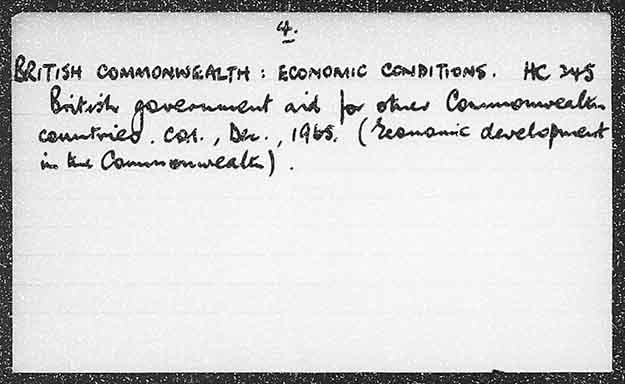 4.
BRITISH COMMONWEALTH: ECONOMIC CONDITIONS. HC 245
British government aid for other Commonwealth
countries. COI., Dec., 1965. (Economic development
in the Commonwealth).